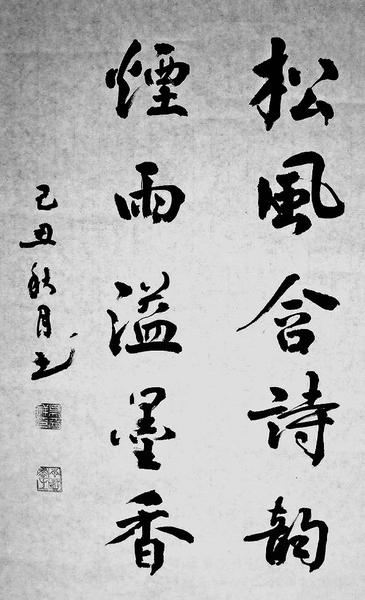 松風含詩韵
煙雨溢墨香
己丑秋月